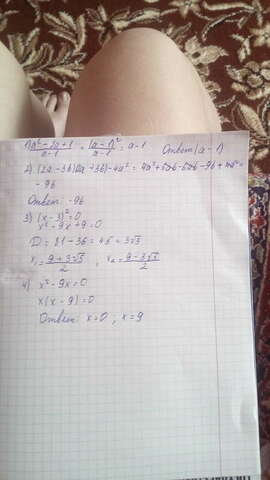 1) a² - 2a + 1 / a - 1 = (a - 1)² / a - 1 = a - 1 Ответ (a - 1)
2) (2a - 3b)(2a + 3b) - 4a² = 4a² + 6ab - 6ab - 9b
- 9b
Ответ: -9b
3) (x - 3)² = 0
x² - 9x + 9 = 0
D = 81 - 36 = 45 = 3√5
x₁ = 9 + 3√5 / 2 , x₂ = 9 - 3√5 / 2
4) x² - 9x = 0
x(x - 9) = 0
Ответ: x = 0 ; x = 9